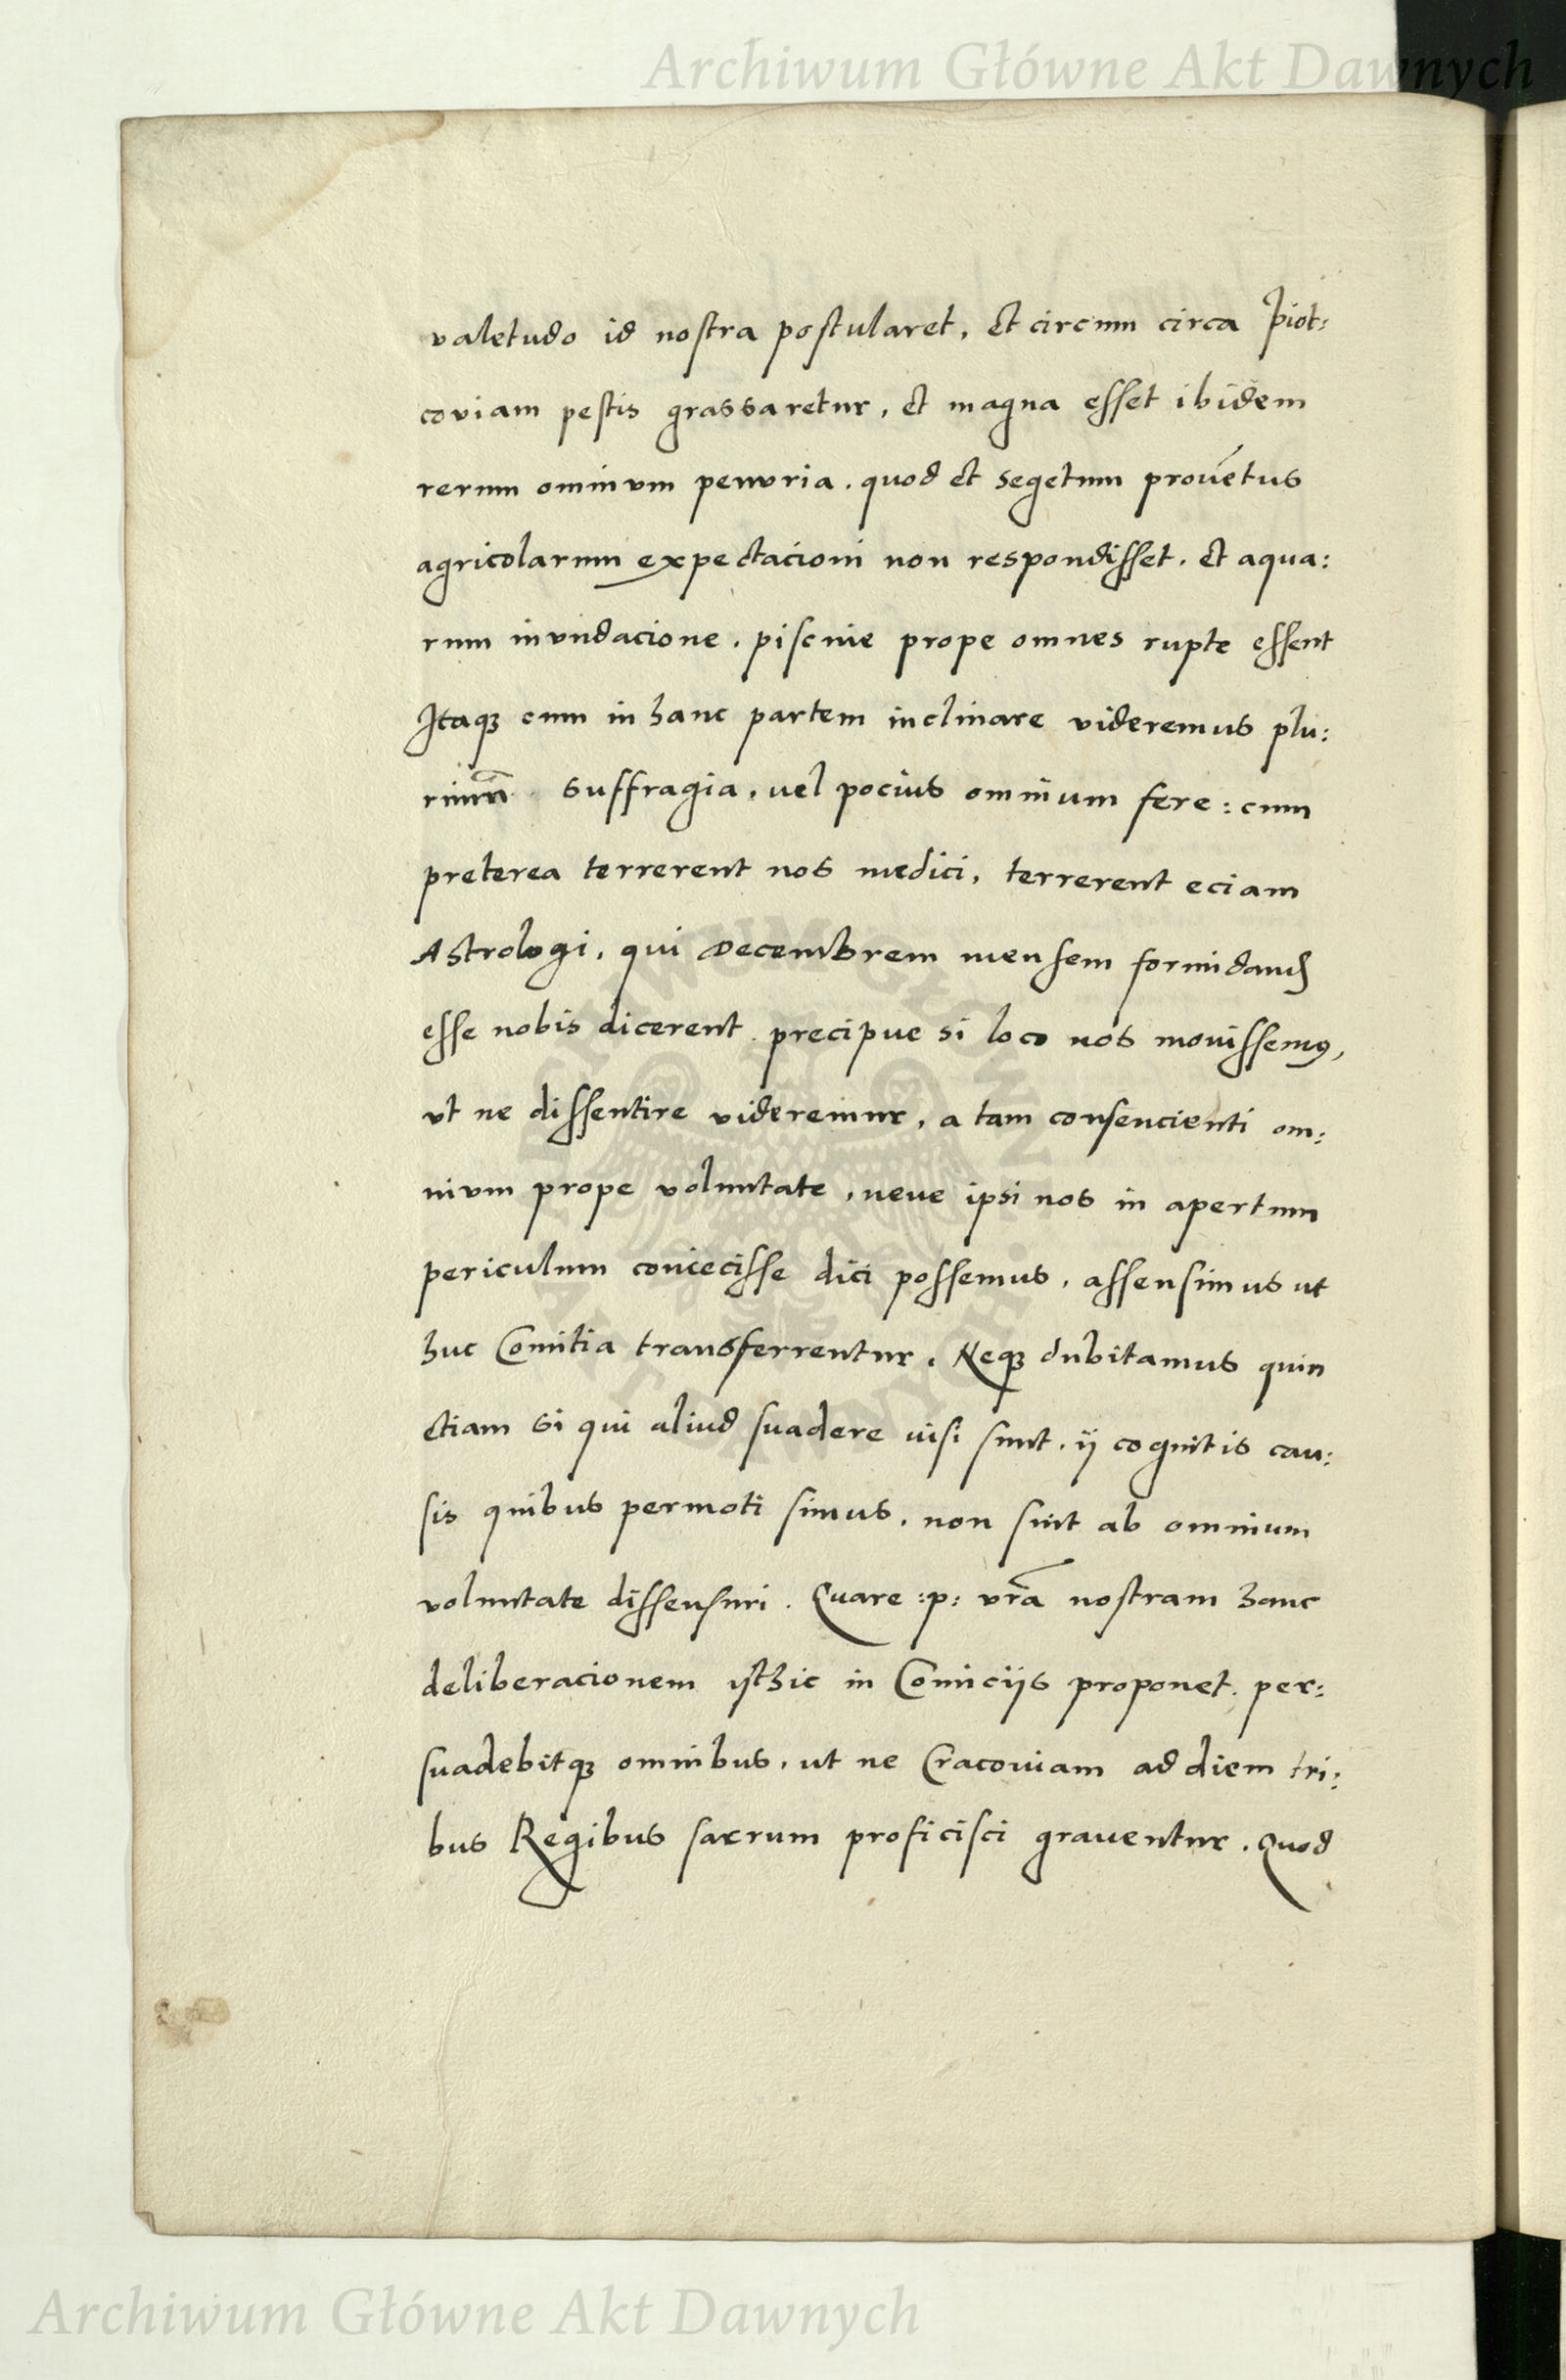 Archiwum Główne Akt Dawnych
valetudo id nostra postularet, et circum circa Piot:
coviam pestis grassaretur, et magna esset ibidem
rerum omnivm penvria. quod et segetum provẽtus
agricolarum expectacioni non respondisset. et aqua:
rum invndacione. piscine prope omnes rupte essent
Itaqꝫ cum in hanc partem inclinare videremus plu:
rimũ suffragia, vel pocius omnium fere: cum
preterea terrerent nos medici, terrerent eciam
Astrologi, qui Decembrem mensem formidandꝫ
esse nobis dicerent. precipve si loco nos movissemꝰ,
vt ne dissentire videremur, a tam consencienti om:
nivm prope voluntate, neve ipsi nos in apertum
periculum coniecisse dici possemus, assensimus ut
huc Comitia transferrentur. Neqꝫ dubitamus quin
etiam si qui aliud suadere visi sunt. ij cognitis cau:
sis quibus permoti simus, non sint ab omnium
voluntate dissensuri. Quare :p: vr̃a nostram hanc
deliberacionem isthic in Comiciis proponet. per:
suadebitqꝫ omnibus, ut ne Cracoviam ad diem tri:
bus Regibus sacrum proficisci graventur. Quod
Archiwum Główne Akt Dawnych